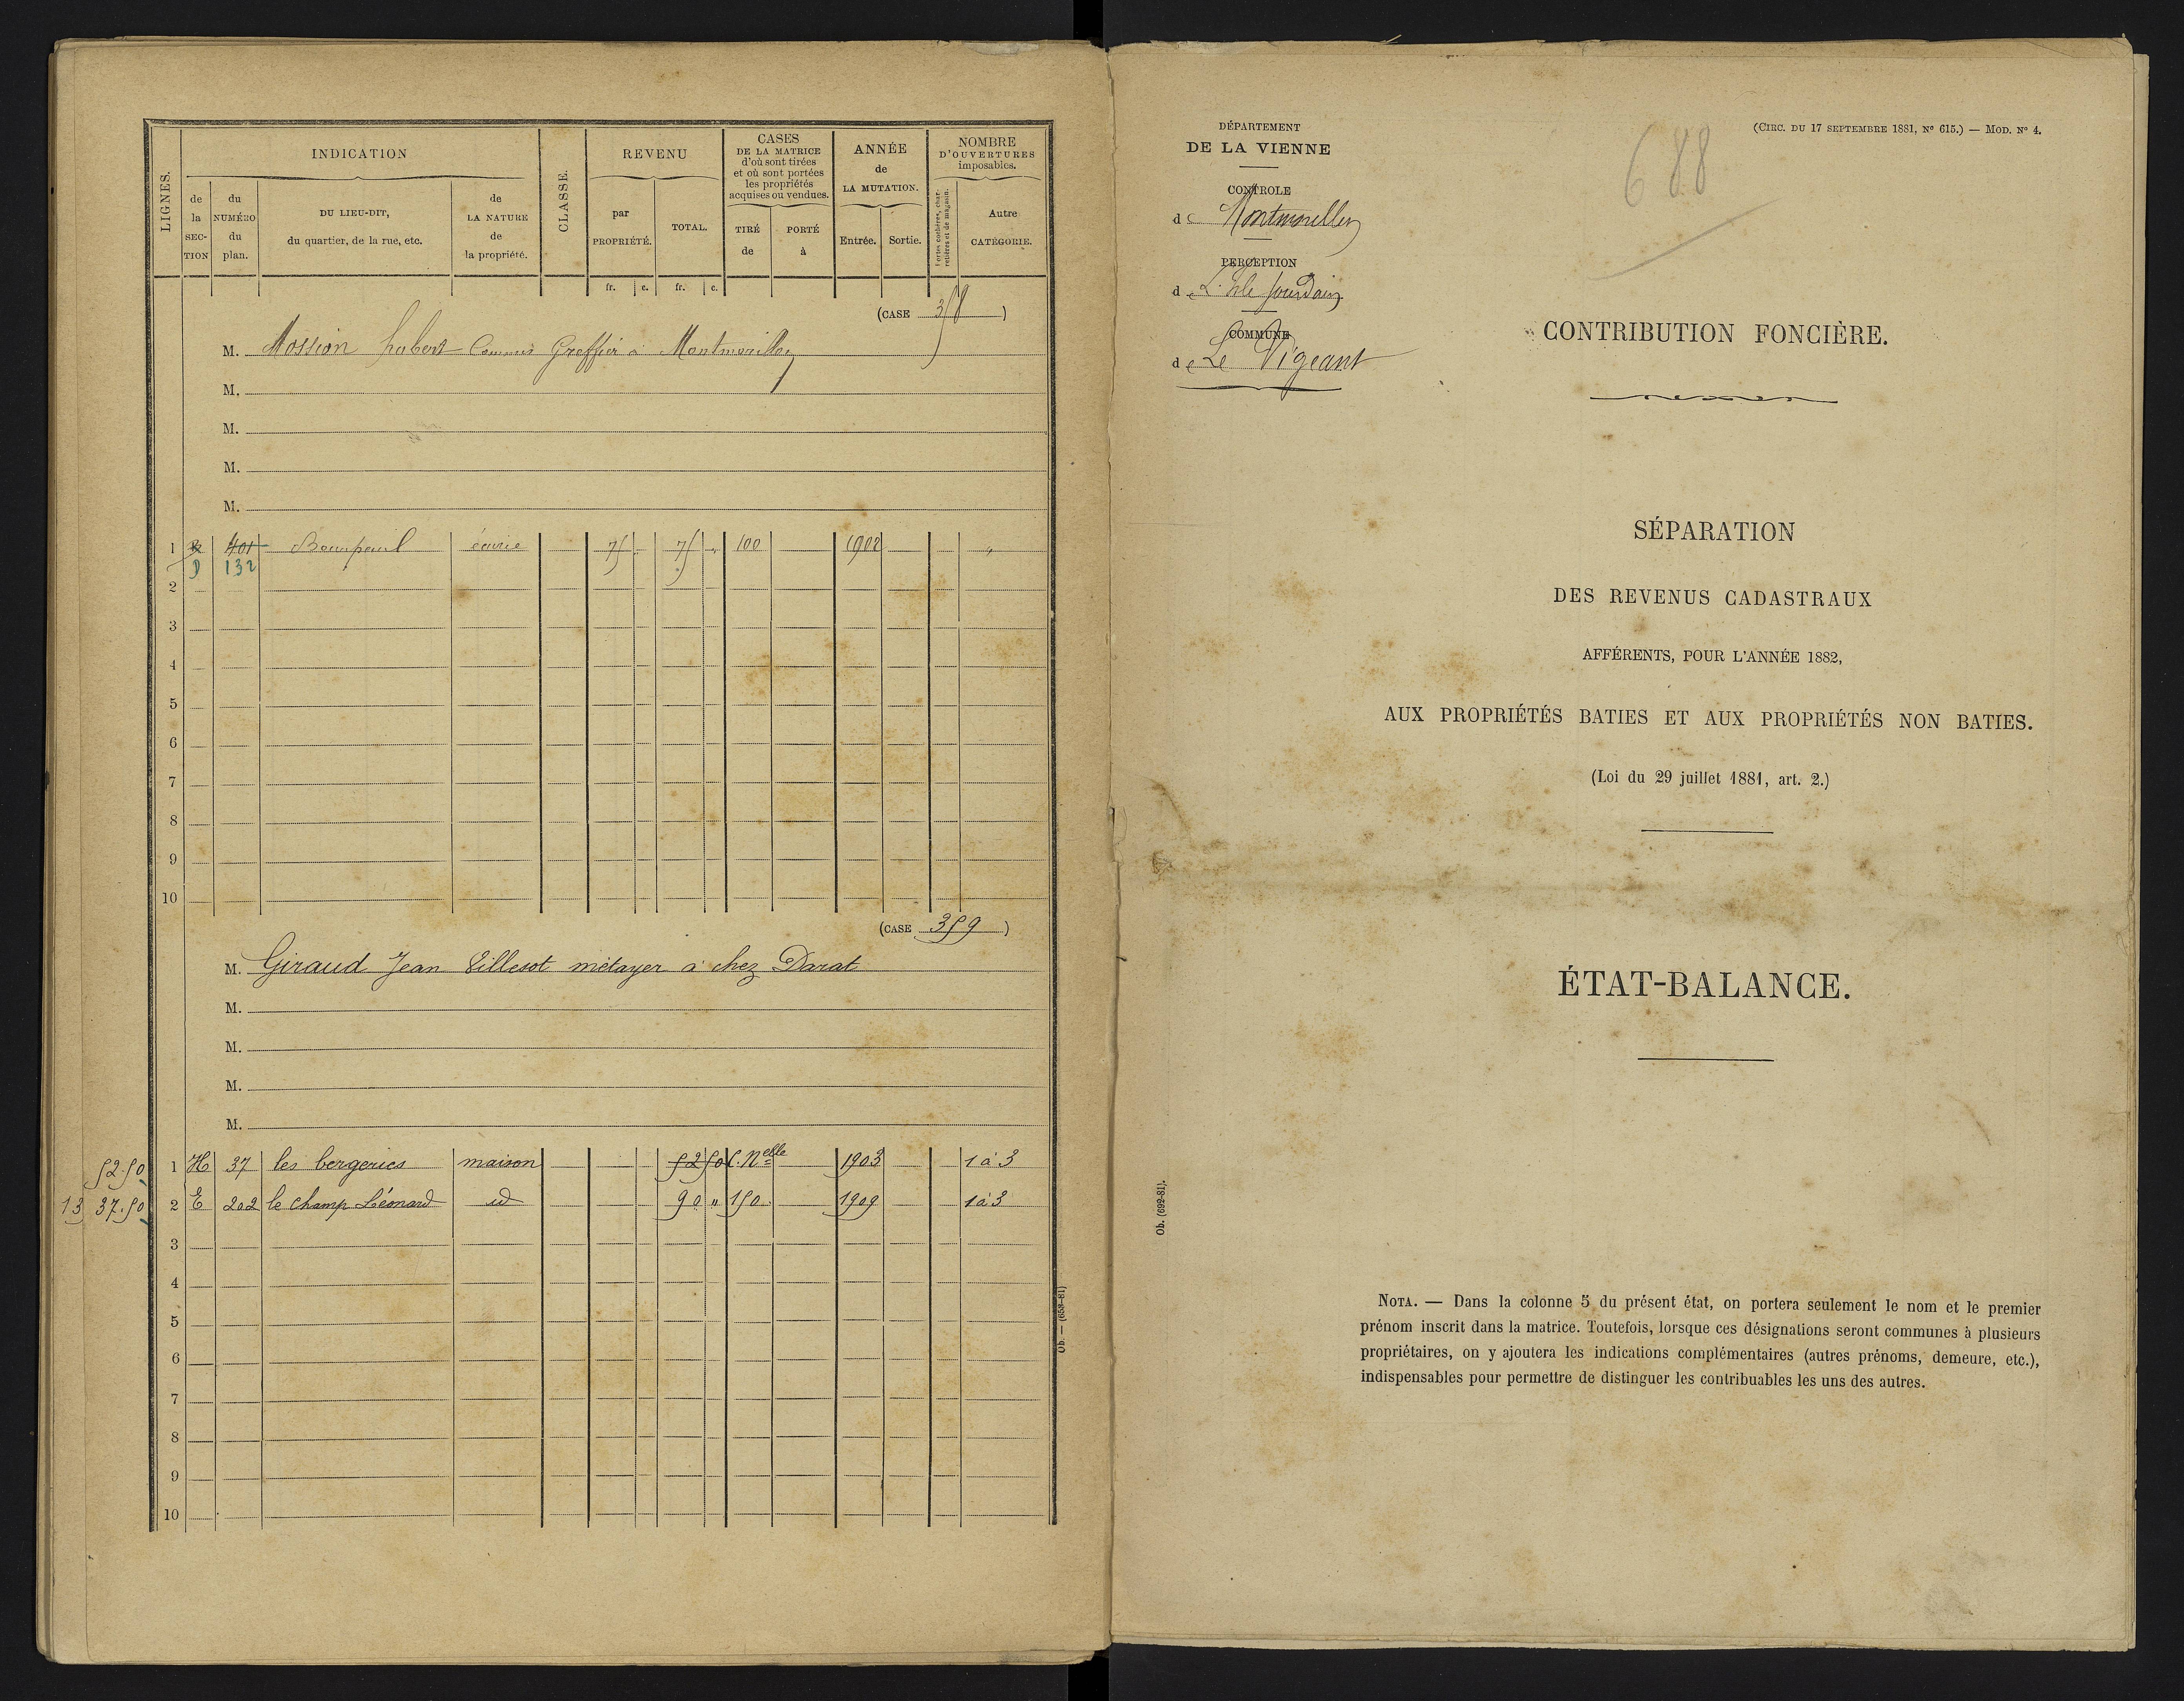 LIGNES.
INDICATION
CLASSE.
REVENU
CASES
DE LA MATRICE
d'où sont tirées
et où sont portées
les propriétés
acquises ou vendues.
ANNÉE
de
LA MUTATION.
NOMBRE
D'OUVERTURES
imposables.
de la SECTION
du NUMÉRO du plan.
DU LIEU-DIT,
du quartier, de la rue, etc.
de LA NATURE de la propriété.
par PROPRIÉTÉ.
TOTAL.
TIRÉ de
PORTÉ à
Entrée.
Sortie.
Portes cochères, charretières et de magasin.
Autre CATÉGORIE.
fr. c. fr. c.
(CASE 358)
M. Mossion hubert Commis Greffier à Montmorillon
M.
M.
M.
M.
1 401 Beaupuil écurie 75 75 " 100 1902 "
D 132
2
3
4
5
6
7
8
9
10
(CASE 359)
M. Giraud Jean Villesot métayer à chez Darat
M.
M.
M.
M.
52.50 1 H 37 les bergeries maison 52 50 C. Nelle 1903 1 à 3
13 37.50 2 E 202 le champ Léonard id 90 " 150 1909 1 à 3
3
4
5
6
7
8
9
10
Ob. — (658-81)
DÉPARTEMENT
DE LA VIENNE
CONTROLE
de Montmorillon
PERCEPTION
de L'Isle Jourdain
COMMUNE
de Le Vigeant
688
(CIRC. DU 17 SEPTEMBRE 1881, N° 615.) — MOD. N° 4.
CONTRIBUTION FONCIÈRE.
SÉPARATION
DES REVENUS CADASTRAUX
AFFÉRENTS, POUR L'ANNÉE 1882,
AUX PROPRIÉTÉS BATIES ET AUX PROPRIÉTÉS NON BATIES.
(Loi du 29 juillet 1881, art. 2.)
ÉTAT-BALANCE.
Ob. (692-81).
NOTA. — Dans la colonne 5 du présent état, on portera seulement le nom et le premier
prénom inscrit dans la matrice. Toutefois, lorsque ces désignations seront communes à plusieurs
propriétaires, on y ajoutera les indications complémentaires (autres prénoms, demeure, etc.),
indispensables pour permettre de distinguer les contribuables les uns des autres.